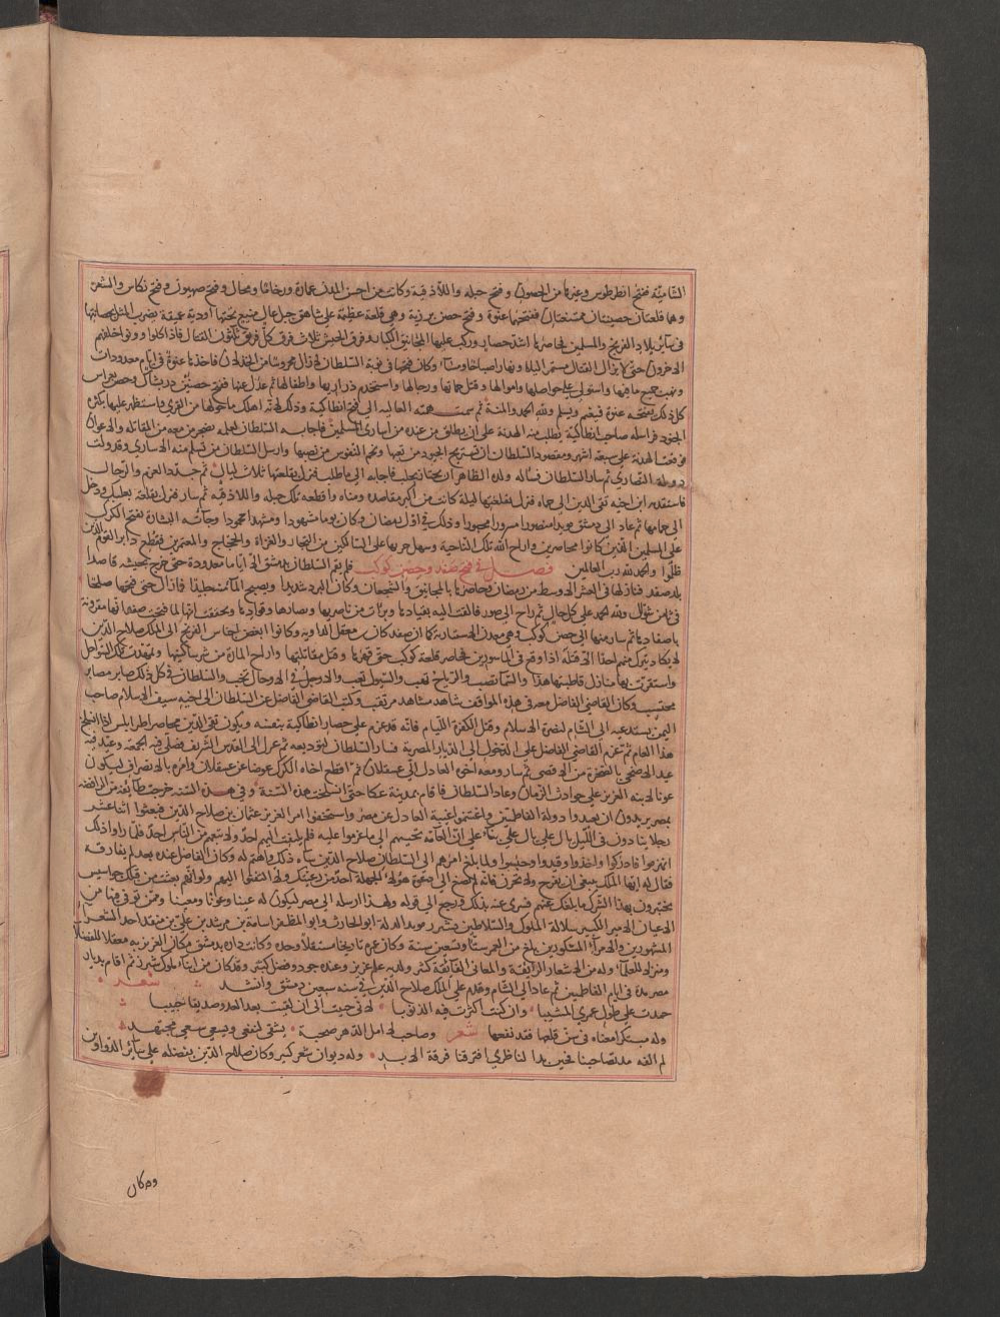 الشاميّة ففتح انطرطوس وغيرها من الحصون وفتح جبله واللاذقية وكانت من احسن المدن عمارة ورخاما ومحال وفتح صهيون وفتح بكاس والشغر
وهما قلعتان حصينتان ففتحهما عنوة وفتح حصن برزية وهي قلعة عظيمة على شاهق جبل عالي منيع تحتها اودية عميقة يضرب المثل بحصانتها
في سائر بلاد الفرنج والمسلمين فحاصرها اشد حصار وركب عليها المجانيق الكبار وفرق الجيش ثلاث فرق كل فريق يلون القتال فاذا كلوا وونوا خلفهم
الاخرون حتى لا يزال القتال مستمر اليلا ونهارا صباحا ومساء وكان فتحها في فاخذها عنوة في ايام معدودات
ونهب جميع ما فيها واستولى على حواصلها واموالها وقتل حماتها ورجالها واستخدم ذراريها واطفالها ثم عدل عنها ففتح حصن دربساك وحصن بغراس
كل ذلك يفتحه عنوة فيغنم ويسلم ولله الحمد والمنة ثم سمت همته العاليه الى فتح انطاكية وذلك لانه اهلك ما حولها من القرى واستظهر عليها بكثرة
الجنود فراسله صاحب انطاكية يطلب منه الهدنة على ان يطلق من عنده من اسارى المسلمين فاجابه السلطان لعلمه بضجر من معه من المقاتله والاعوان
فوقعت الهدنة على سبعة اشهر ومقصود السلطان ان تستريح الجنود من تعبها وتجم النفوس من نصبها وارسل السلطان من تسلم منه الاسارى وقد ولت
دولة النصارى ثم سار السلطان فساله ولده الظاهر ان يجتاز بحلب فاجابه الى ما طلب فنزل بقلعتها ثلاث ليال ثم جدد العزم والترحال
فاستقدمه ابن اخيه تقي الدين الى حماه فنزل بقلعتها ليلة كانت من اكبر مقاصده ومناه واقطعه تلك جبله واللاذقيه ثم سار فنزل بقلعة بعلبك ودخل
الى حمامها ثم عاد الى دمشق مويدا منصورا مسرورا محبورا وذلك في اول رمضان وكان يوما مشهودا ومشهدا محمودا وجآءته البشارة بفتح الكرك
على المسلمين الذين كانوا محاصرين واراح الله تلك الناحية وسهل حزنها على السالكين من التجار والغزاة والحجاج والمعتمرين فقطع دابر القوم الذين
ظلموا والحمد لله رب العالمين فصل في فتح صفد وحصن كوكب فلم يقم السلطان بدمشق الا اياما معدودة حتى خرج بجيشه قاصدا
بلد صفد فنازلها في العشر الاوسط من رمضان وحاصرها بالمجانيق والشجعان وكان البرد شديدا ويصبح الماء جليدا فما زال حتى فتحها صلحا
في ثامن شوال ولله الحمد على كل حال ثم راح الى صور فالقت اليه بقيادها وتبرات من ناصريها وانصارها وقوادها وتحققت انها لما فتحت صفد انها مقرونة
باصفادها ثم سار منها الى حصن كوكب وهي معدن الاسبتارية كما ان صفد كانت معقل الداويه وكانوا ابغض اجناس الفرنج الى الملك صلاح الدين
لا يكاد يترك منهم احدا الا قتله اذا وقع في الماسورين فحاصر قلعة كوكب حتى قهرها وقتل مقاتلتها واراح المارة من شر ساكنيها وتمهدت تلك السواحل
واستقرت بها منازل قاطنيها هذا والسما تصب والرياح تهب والسيول تعب والارجل في الاوحال تخب والسلطان في كل ذلك صابر مصابر
محتسب وكان القاضي الفاضل معه في هذه المواقف شاهد مرتقب وكتب القاضي الفاضل عن السلطان الى اخيه سيف الاسلام صاحب
اليمن يستدعيه الى الشام لنصرة الاسلام وقتل الكفرة اللئام فانه قد عزم على حصار انطاكية بنفسه ويكون تقي الدين محاصر اطرابلس اذا انسلخ
هذا العام ثم عزم القاضي الفاضل على الدخول الى الديار المصرية فسار السلطان لتوديعه ثم عدل الى القدس الشريف فصلى فيه الجمعة وعيد فيه
عيد الاضحى بالصخرة من الاقصى ثم سار ومعه اخوه العادل الى عسقلان ثم اقطع اخاه الكرك عوضا عن عسقلان وامره بالانصراف ليكون
عونا لابنه العزيز على حوادث الزمان وعاد السلطان فاقام بمدينة عكا حتى انسلخت هذه السنة وفي هذه السنه خرجت طائفة من الرافضه
بمصر يريدون ان يعيدوا دولة الفاطميين واغتنموا غيبة العادل عن مصر واستخفوا امر العزيز عثمان بن صلاح الدين فبعثوا اثنا عشر
رجلا ينادون في الليل يال علي يال علي بناء على ان العامة تجيبهم الى ما عزموا عليه فلم يلتفت اليهم احد ولا تبعهم من الناس احد فلما راوا ذلك
انهزموا فادركوا واخذوا وقيدوا وحبسوا ولما بلغ امرهم الى السلطان صلاح الدين ساءه ذلك واهتم له وكان الفاضل عنده بعد لم يفارقه
فقال له ايها الملك ينبغي ان تفرح ولا تحزن فانه لم يصغ الى دعوة هؤلاء الجهلة احد من رعيتك ولا التفتوا اليهم ولو انهم بعثت من قبلك جواسيس
يختبرون بهذا لسرك ما بلغك عنهم فسري عنه بذلك ورجع الى قوله ولهذا ارسله الى مصر ليكون له عينا وعونا ومعينا وممن توفي فيها من
الاعيان الامير الكبير سلالة الملوك والسلاطين بشيزر مويد الدولة ابو الحارث وابو المظفر اسامة بن مرشد بن علي بن منقذ احد الشعراء
المشهورين والامراء المشكورين بلغ من العمر ستا وتسعين سنة وكان عمره تاريخا مستقلا وحده وكانت داره بدمشق مكان العزيزيه معقلا للفضلاء
ومنزلا للعلماء وله من الاشعار الرايقة والمعاني الفايقة كثر ولديه علم غزير وعنده جود وفضل كبير وقد كان من ابناء ملوك شيزر ثم اقام بديار
مصر مدة في ايام الفاطميين ثم عاد الى الشام وقدم على الملك صلاح الدين في سنة سبعين دمشق وانشد شعر
حمدت على طول عمري المشيبا وان كنت اكثرت فيه الذنوبا لاني حييت الى ان لقيت بعد العدو صديقا حبيبا
وله مبتكرا معناه في سن قلعها فقد نفعها شعر وصاحب لا امل الدهر صحبته يشقى لنفعي ويسعى سعي مجتهد
لم القه مذ تصاحبنا فحين بدا لناظري افترقنا فرقة الابد وله ديوان شعر كبير وكان صلاح الدين يفضله على سائر الدواوين
وكان